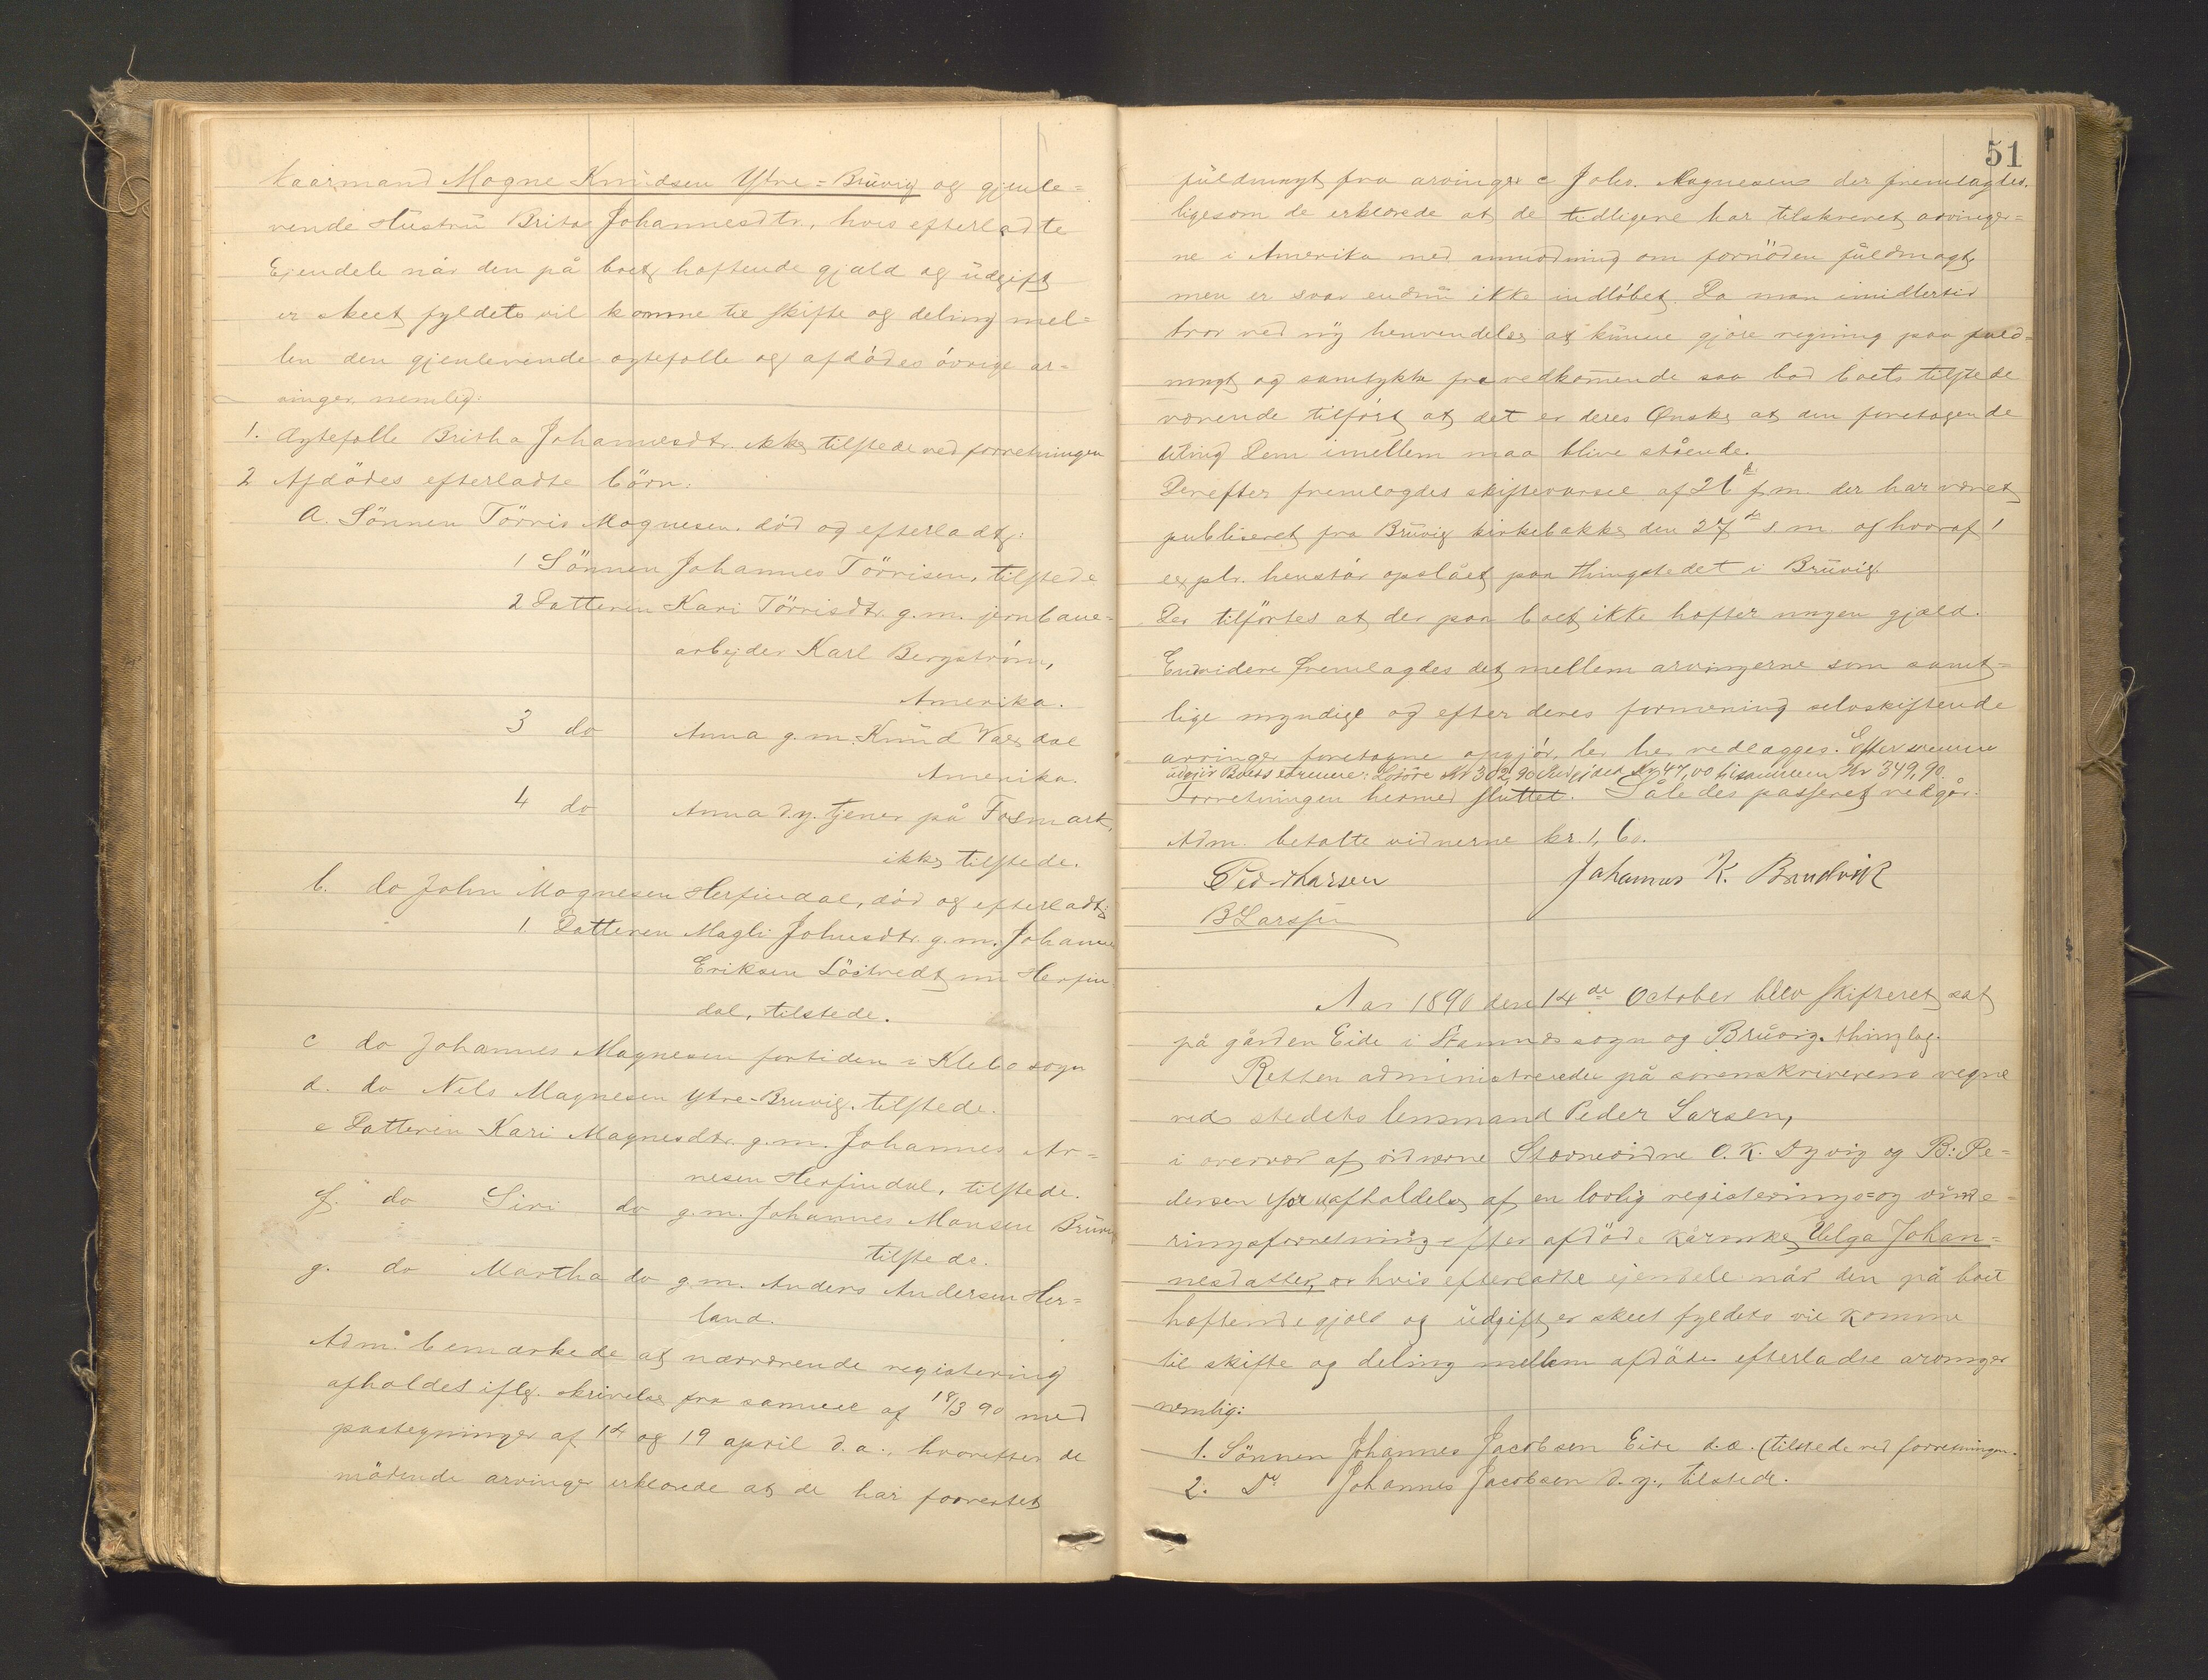 kaarmand Magne Knudsen Ytre=Bruvig og gjenle=
vende Hustru Brita Johannesdtr., hvis efterladte
Ejendele når den på boet heftende gjæld og udgift
er skeet fyldets vil komme til skifte og deling mel=
len den gjenlevende ægtefælle og afdødes øvrige ar=
vinger, nemlig:
1. Ægtefælle Britha Johannesdtr. ikke tilstede ved forretningen
2 Afdødes efterladte børn:
a. Sönnen Törris Magnesen. død og efterladt:
1 Sönnen Johannes Törrisen, tilstede
2 Datteren Kari Törrisdtr. g.m. jernbane=
arbejder Karl Bergström,
Amerika.
3 do Anna g.m. Knud Vaxdal
Amerika.
4 do Anna d.y. tjener på Fosmark,
ikke tilstede.
b. do John Magnesen Herfindal, død og efterladt:
1. Datteren Magli Johnsdtr. g.m. Johannes
Eriksen nu Herfin
dal, tilstede.
c do Johannes Magnesen fortiden i Klebo sogn
d. do Nels Magnesen Ytre-Bruvig. tilstede.
e Datteren Kari Magnesdtr. g.m. Johannes Ar=
nesen Herfindal, tilstede.
f. do Siri do g.m. Johannes Monsen Bruvig
tilstede.
g. do Martha do g.m. Anders Andersen Her=
land.
Adm. bemærkede at nærværende registering
afholdes iflg. skrivelse fra samme af 18/3 90 med
paategninger af 14 og 19 april d.a., hvorefter de
mødende arvinger erklærede at de har forventet
51
fuldmagt fra arvinger c Johs. Magnesen der fremlagdes.
ligesom de erklærede at de tidligere har tilskrevet arvinger=
ne i Amerika med anmodning om fornöden fuldmagt
men er svar endnu ikke indløbet. Da man imidlertid
tror ved ny henvendelse at kunne gjøre regning paa fuld=
magt og samtykke fra vedkommende saa bad boets tilstede
værende tilført at det er deres Ønske at den foretagende
utlng Dem imellem maa blive stående.
Derefter fremlagdes skiftevarsel af 26 d. f.m. der har været
publiseret fra Bruvig kirkebakke den 27 d. s m. og hvoraf 1
explr. henstår opslået paa thingstedet i Bruvig.
Der tilførtes at der paa boet ikke hefter nogen gjæld.
Endvidere fremlagdes det mellem arvingerne som samt=
lige myndige og efter deres formening selvskiftende
arvinger foretagne opgjör, der her vedlægges. Efter samme
udgjör Boets : Löšöre Kr 302,90 Kr 47,00 tilsammen Kr 349,90.
Forretningen hermed sluttet. Således passeret vedgår:
Adm. betalte vidnerne kr. 1,60.
Ped. Larsen Johannes K. Brudvik
B Larssen
Aar 1890 den 14de October blev skifteret sat
på gården Eide i Stamnes sogn og Bruvig. thinglag.
Retten administreredes på sorenskriverens vegne
ved stedets lensmand Peder Larsen,
i overvær af vidnerne Stevnevidne O. K. Dyvig og B: Pe=
dersen for afholdelse af en lovlig registerings=og vurde=
ringsforretning efter afdøde kårenke Helga Johan=
nesdatter, hvis efterladte ejendele når den på boet
heftende gjæld og udgift er skeet fyldets vil komme
til skifte og deling mellem afdødes efterladte arvinger
nemlig:
1. Sönnen Johannes Jacobsen Eide d.æ. (tilstede ved forretningen.
2. Do Johannes Jacobsen d.y., tilstede.